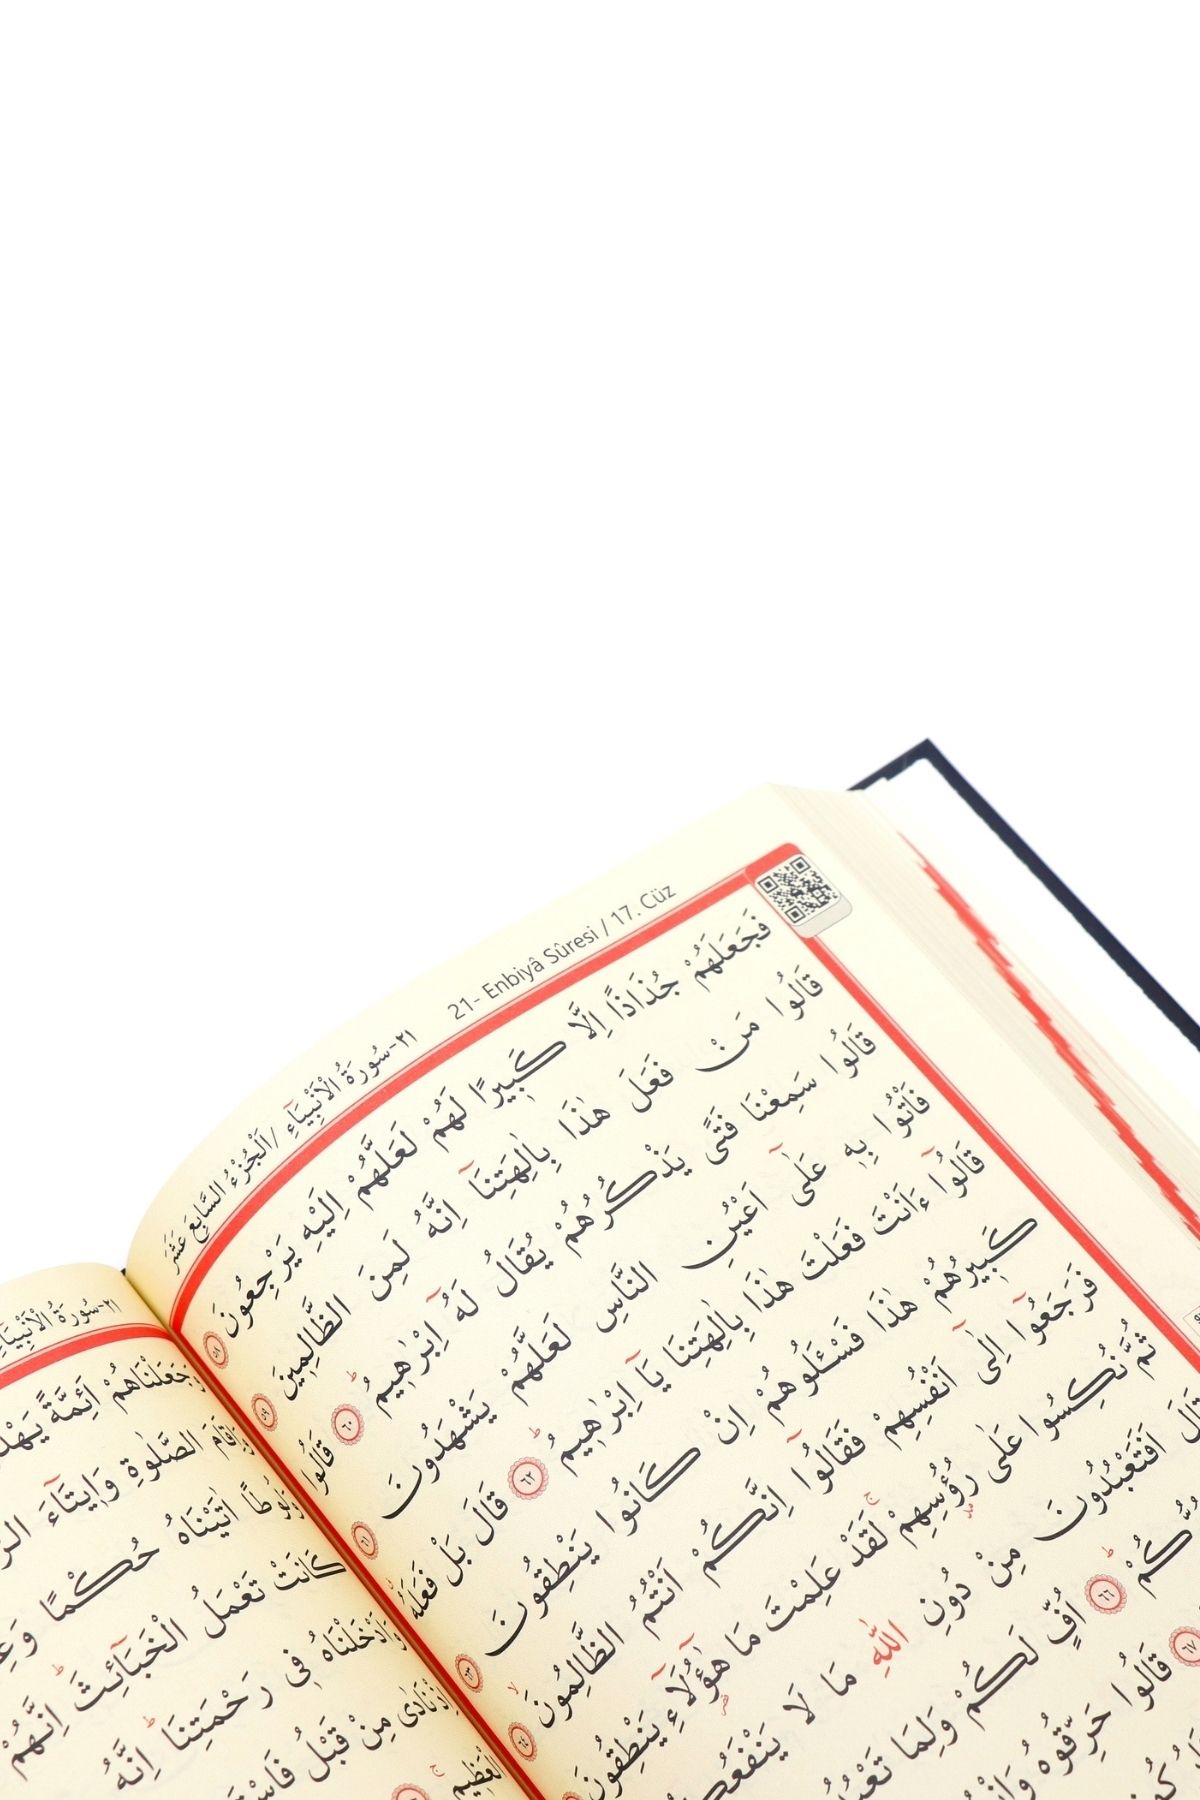 ٢١-سُورَةُ الْاَنْبِيَٓاءِ / اَلْجُزْءُ السَّابِعَ عَشَرَ
21- Enbiyâ Sûresi / 17. Cüz
فَجَعَلَهُمْ جُذَاذًا اِلَّا كَب۪يرًا لَهُمْ لَعَلَّهُمْ اِلَيْهِ يَرْجِعُونَ ﴿٥٨﴾
قَالُوا مَنْ فَعَلَ هٰذَا بِاٰلِهَتِنَٓا اِنَّهُ لَمِنَ الظَّالِم۪ينَ ﴿٥٩﴾
قَالُوا سَمِعْنَا فَتًى يَذْكُرُهُمْ يُقَالُ لَهُٓ اِبْرٰه۪يمُ ﴿٦٠﴾ قَالُوا
فَأْتُوا بِه۪ عَلٰٓى اَعْيُنِ النَّاسِ لَعَلَّهُمْ يَشْهَدُونَ ﴿٦١﴾
قَالُٓوا ءَاَنْتَ فَعَلْتَ هٰذَا بِاٰلِهَتِنَا يَٓا اِبْرٰه۪يمُ ﴿٦٢﴾ قَالَ بَلْ فَعَلَهُ
كَب۪يرُهُمْ هٰذَا فَسْـَٔلُوهُمْ اِنْ كَانُوا يَنْطِقُونَ ﴿٦٣﴾
فَرَجَعُٓوا اِلٰٓى اَنْفُسِهِمْ فَقَالُٓوا اِنَّكُمْ اَنْتُمُ الظَّالِمُونَ ﴿٦٤﴾
ثُمَّ نُكِسُوا عَلٰى رُؤُ۫سِهِمْ لَقَدْ عَلِمْتَ مَا هٰٓؤُ۬لَٓاءِ يَنْطِقُونَ
قَالَ اَفَتَعْبُدُونَ مِنْ دُونِ اللّٰهِ مَا لَا يَنْفَعُكُمْ
اُفٍّ لَكُمْ وَلِمَا ﴿٦٦﴾
﴿٦٧﴾ قَالُوا حَرِّقُوهُ
٢١-سُورَةُ الْاَنْبِيَٓاءِ
وَجَعَلْنَاهُمْ اَئِمَّةً
وَاِقَامَ الصَّلٰوةِ وَا۪يتَٓاءَ
وَلُوطًا اٰتَيْنَاهُ حُكْمًا
كَانَتْ تَعْمَلُ الْخَبَٓائِثَ اِنَّهُمْ
وَاَدْخَلْنَاهُ ف۪ي رَحْمَتِنَا اِنَّهُ
اِذْ نَادٰى مِنْ قَبْلُ
الْعَظ۪يمِ